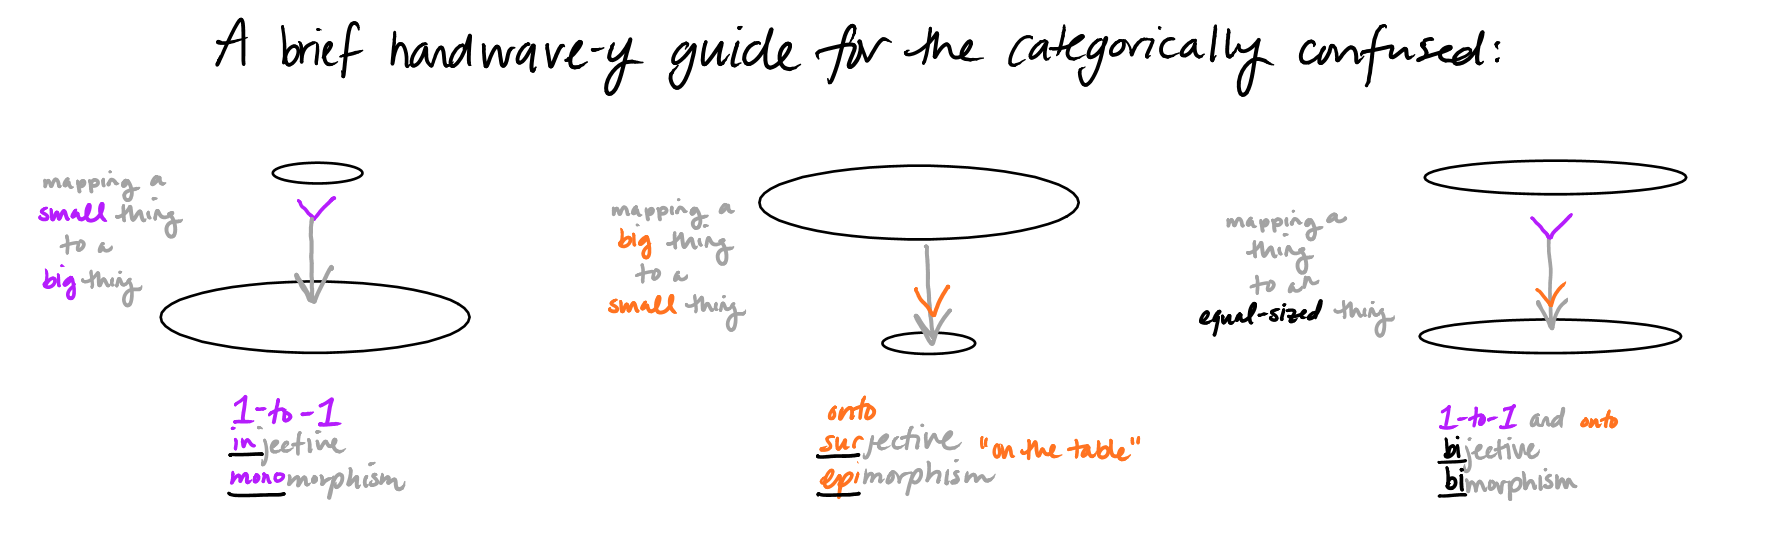 A brief handwave-y guide for the categorically confused:
mapping a
small thing
to a
big thing
1-to-1
injective
monomorphism
mapping a
big thing
to a
small thing
onto
surjective "on the table"
epimorphism
mapping a
thing
to an
equal-sized thing
1-to-1 and onto
bijective
bimorphism